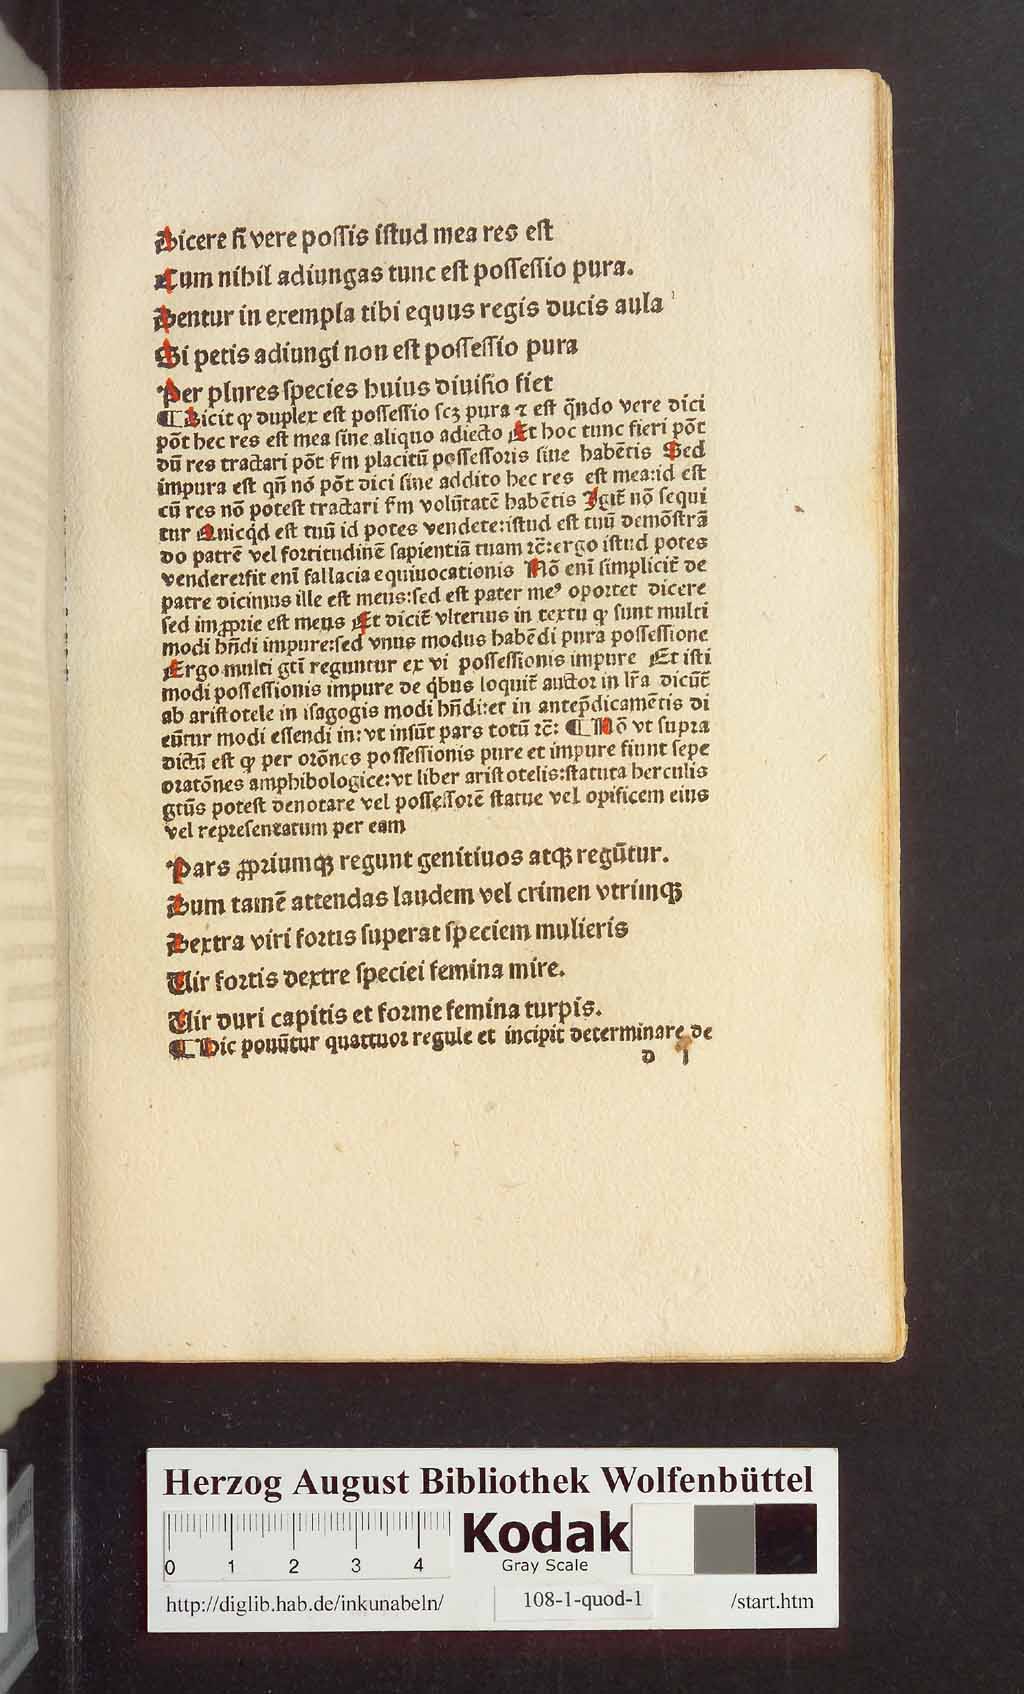 Dicere si vere possis istud mea res est
Cum nihil adiungas tunc est possessio pura.
Dentur in exempla tibi equus regis ducis aula
Si petis adiungi non est possessio pura
Per plures species huius diuisio fiet
¶ Dicit ꝙ duplex est possessio scꝫ pura ⁊ est qñdo vere dici
põt hec res est mea sine aliquo adiecto Et hoc tunc fieri põt
dũ res tractari põt ẜm placitũ possessoris sine habẽtis Sed
impura est qñ nõ põt dici sine addito hec res est mea:id est
cũ res nõ potest tractari ẜm volũtatẽ habẽtis Igit̃ nõ sequi
tur Quicq̇d est tuũ id potes vendere:istud est tuũ demõstrã
do patrẽ vel fortitudinẽ sapientiã tuam ⁊c̃:ergo istud potes
vendere:fit enĩ fallacia equiuocationis Nõ enĩ simplicit̃ de
patre dicimus ille est meus:sed est pater meꝰ oportet dicere
sed imꝓprie est meus Et dicit̃ vlterius in textu ꝙ sunt multi
modi hñdi impure:sed vnus modus habẽdi pura possessione
Ergo multi gtĩ reguntur ex vi possessionis impure Et isti
modi possessionis impure de q̇bus loquit̃ auctor in lr̃a dicũt̃
ab aristotele in isagogis modi hñdi:et in antep̃dicamẽtis di
cũtur modi essendi in:vt insũt pars totũ ⁊c̃: ¶ Nõ vt supra
dictũ est ꝙ per orõnes possessionis pure et impure fiunt sepe
oratõnes amphibologice:vt liber aristotelis:statuta herculis
gtũs potest denotare vel possessorẽ statue vel opificem eius
vel representatum per eam
Pars ꝓpriumqꝫ regunt genitiuos atqꝫ regũtur.
Dum tamẽ attendas laudem vel crimen vtrimqꝫ
Dextra viri fortis superat speciem mulieris
Uir fortis dextre speciei femina mire.
Uir duri capitis et forme femina turpis.
¶ Hic ponũtur quattuor regule et incipit determinare de
d j
Herzog August Bibliothek Wolfenbüttel
0 1 2 3 4
Kodak
Gray Scale
http://diglib.hab.de/inkunabeln/ 108-1-quod-1 /start.htm